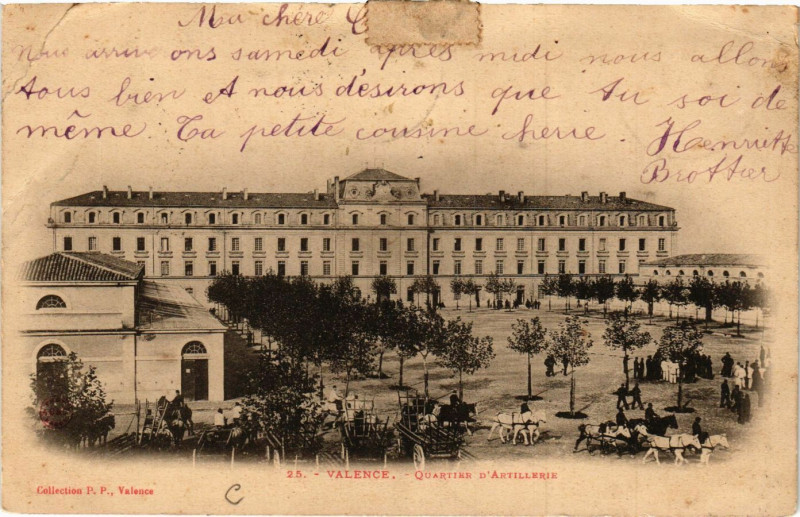 Ma chère
Nous arriverons samedi après midi nous allons
tous bien et nous désirons que tu soi de
même. Ta petite cousine cherie.
Henriette
Brottier
25. - VALENCE. - QUARTIER D'ARTILLERIE
Collection P. P., Valence
C